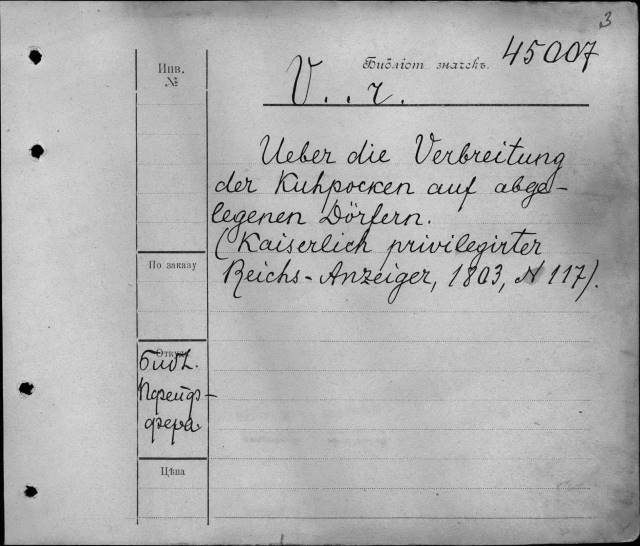 3
Инв.
№
Библіот значекъ.
45007
V. . r.
Ueber die Verbreitung
der Kuhpocken auf abge-
legenen Dörfern.
(Kaiserlich privilegirter
Reichs-Anzeiger, 1803, N 117).
По заказу
Библ.
Пфейф-
фера
Цѣна